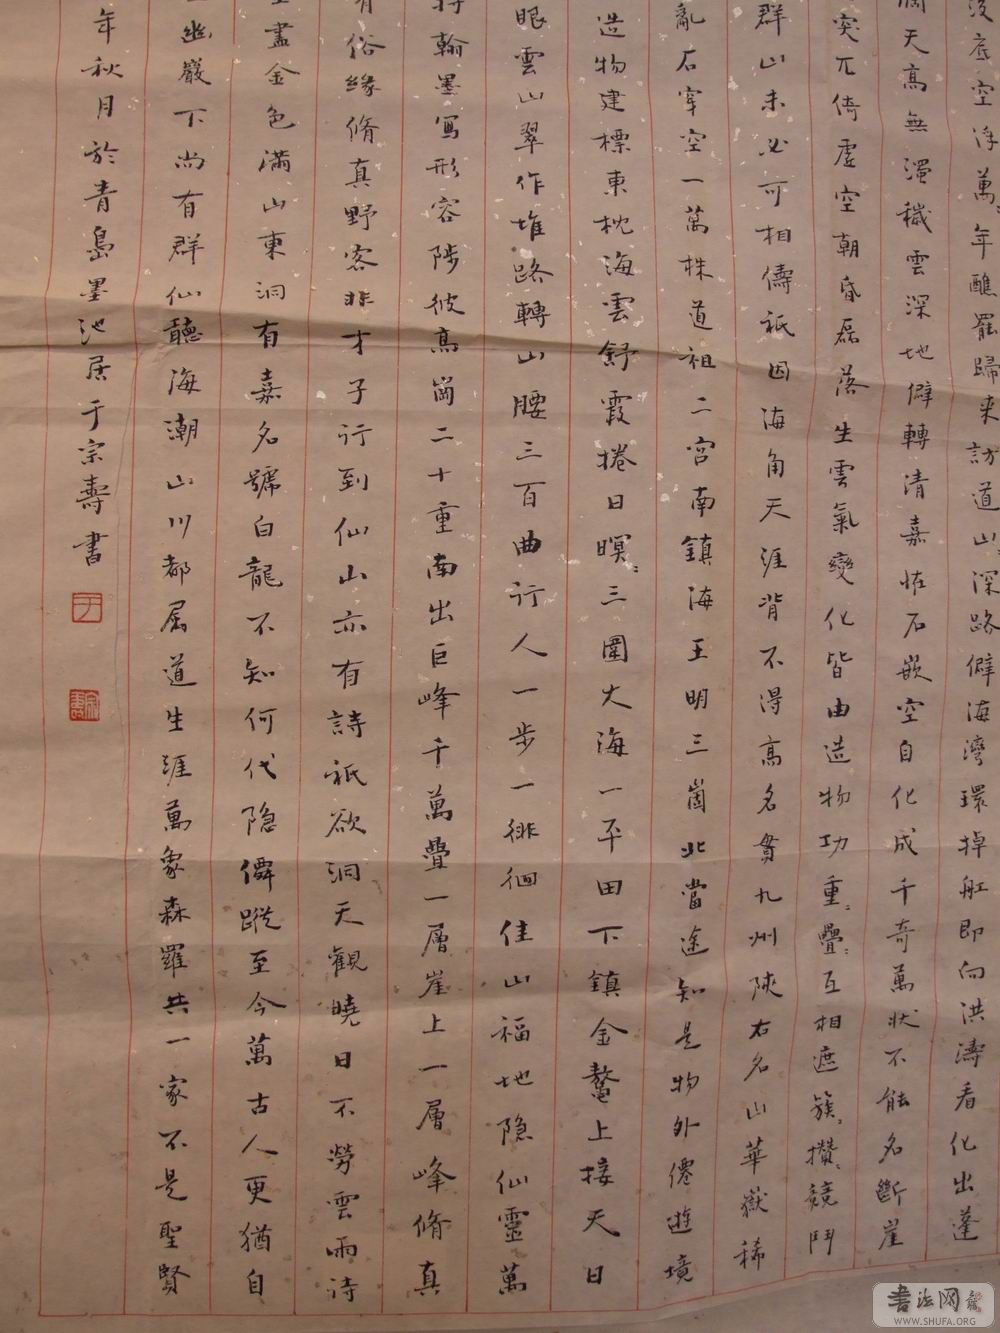 没底空浮萬々年醮罷歸来訪道山々深路僻海灣環掉舡即向洪濤看化出蓬
洞天高無濁穢雲深地僻轉清嘉怪石嵌空自化成千奇萬狀不能名斷崖
突兀倚虛空朝昏磊落生雲氣變化皆由造物功重々疊々互相遮簇々攢々競鬥
群山未必可相儔祇因海角天涯背不得高名貫九州陝右名山華嶽稀
亂石穿空一萬株道祖二宮南鎮海王明三崮北當途知是物外僊遊境
造物建標東枕海雲舒霞捲日暝々三圍大海一平田下鎮金鰲上接天日
眼雲山翠作堆路轉山腰三百曲行人一步一徘徊佳山福地隐仙靈萬
將翰墨寫形容陟彼高崗二十重南出巨峰千萬疊一層崖上一層峰脩真
有俗緣脩真野客非才子行到仙山亦有詩祇欲洞天觀曉日不勞雲雨诗
盡金色滿山東洞有嘉名號白龍不知何代隐僊蹤至今萬古人更猶自
幽巖下尚有群仙聽海潮山川都屬道生涯萬象森羅共一家不是聖賢
年秋月於青島墨池居于宗壽書
于
宗壽
書法网
WWW.SHUFA.ORG